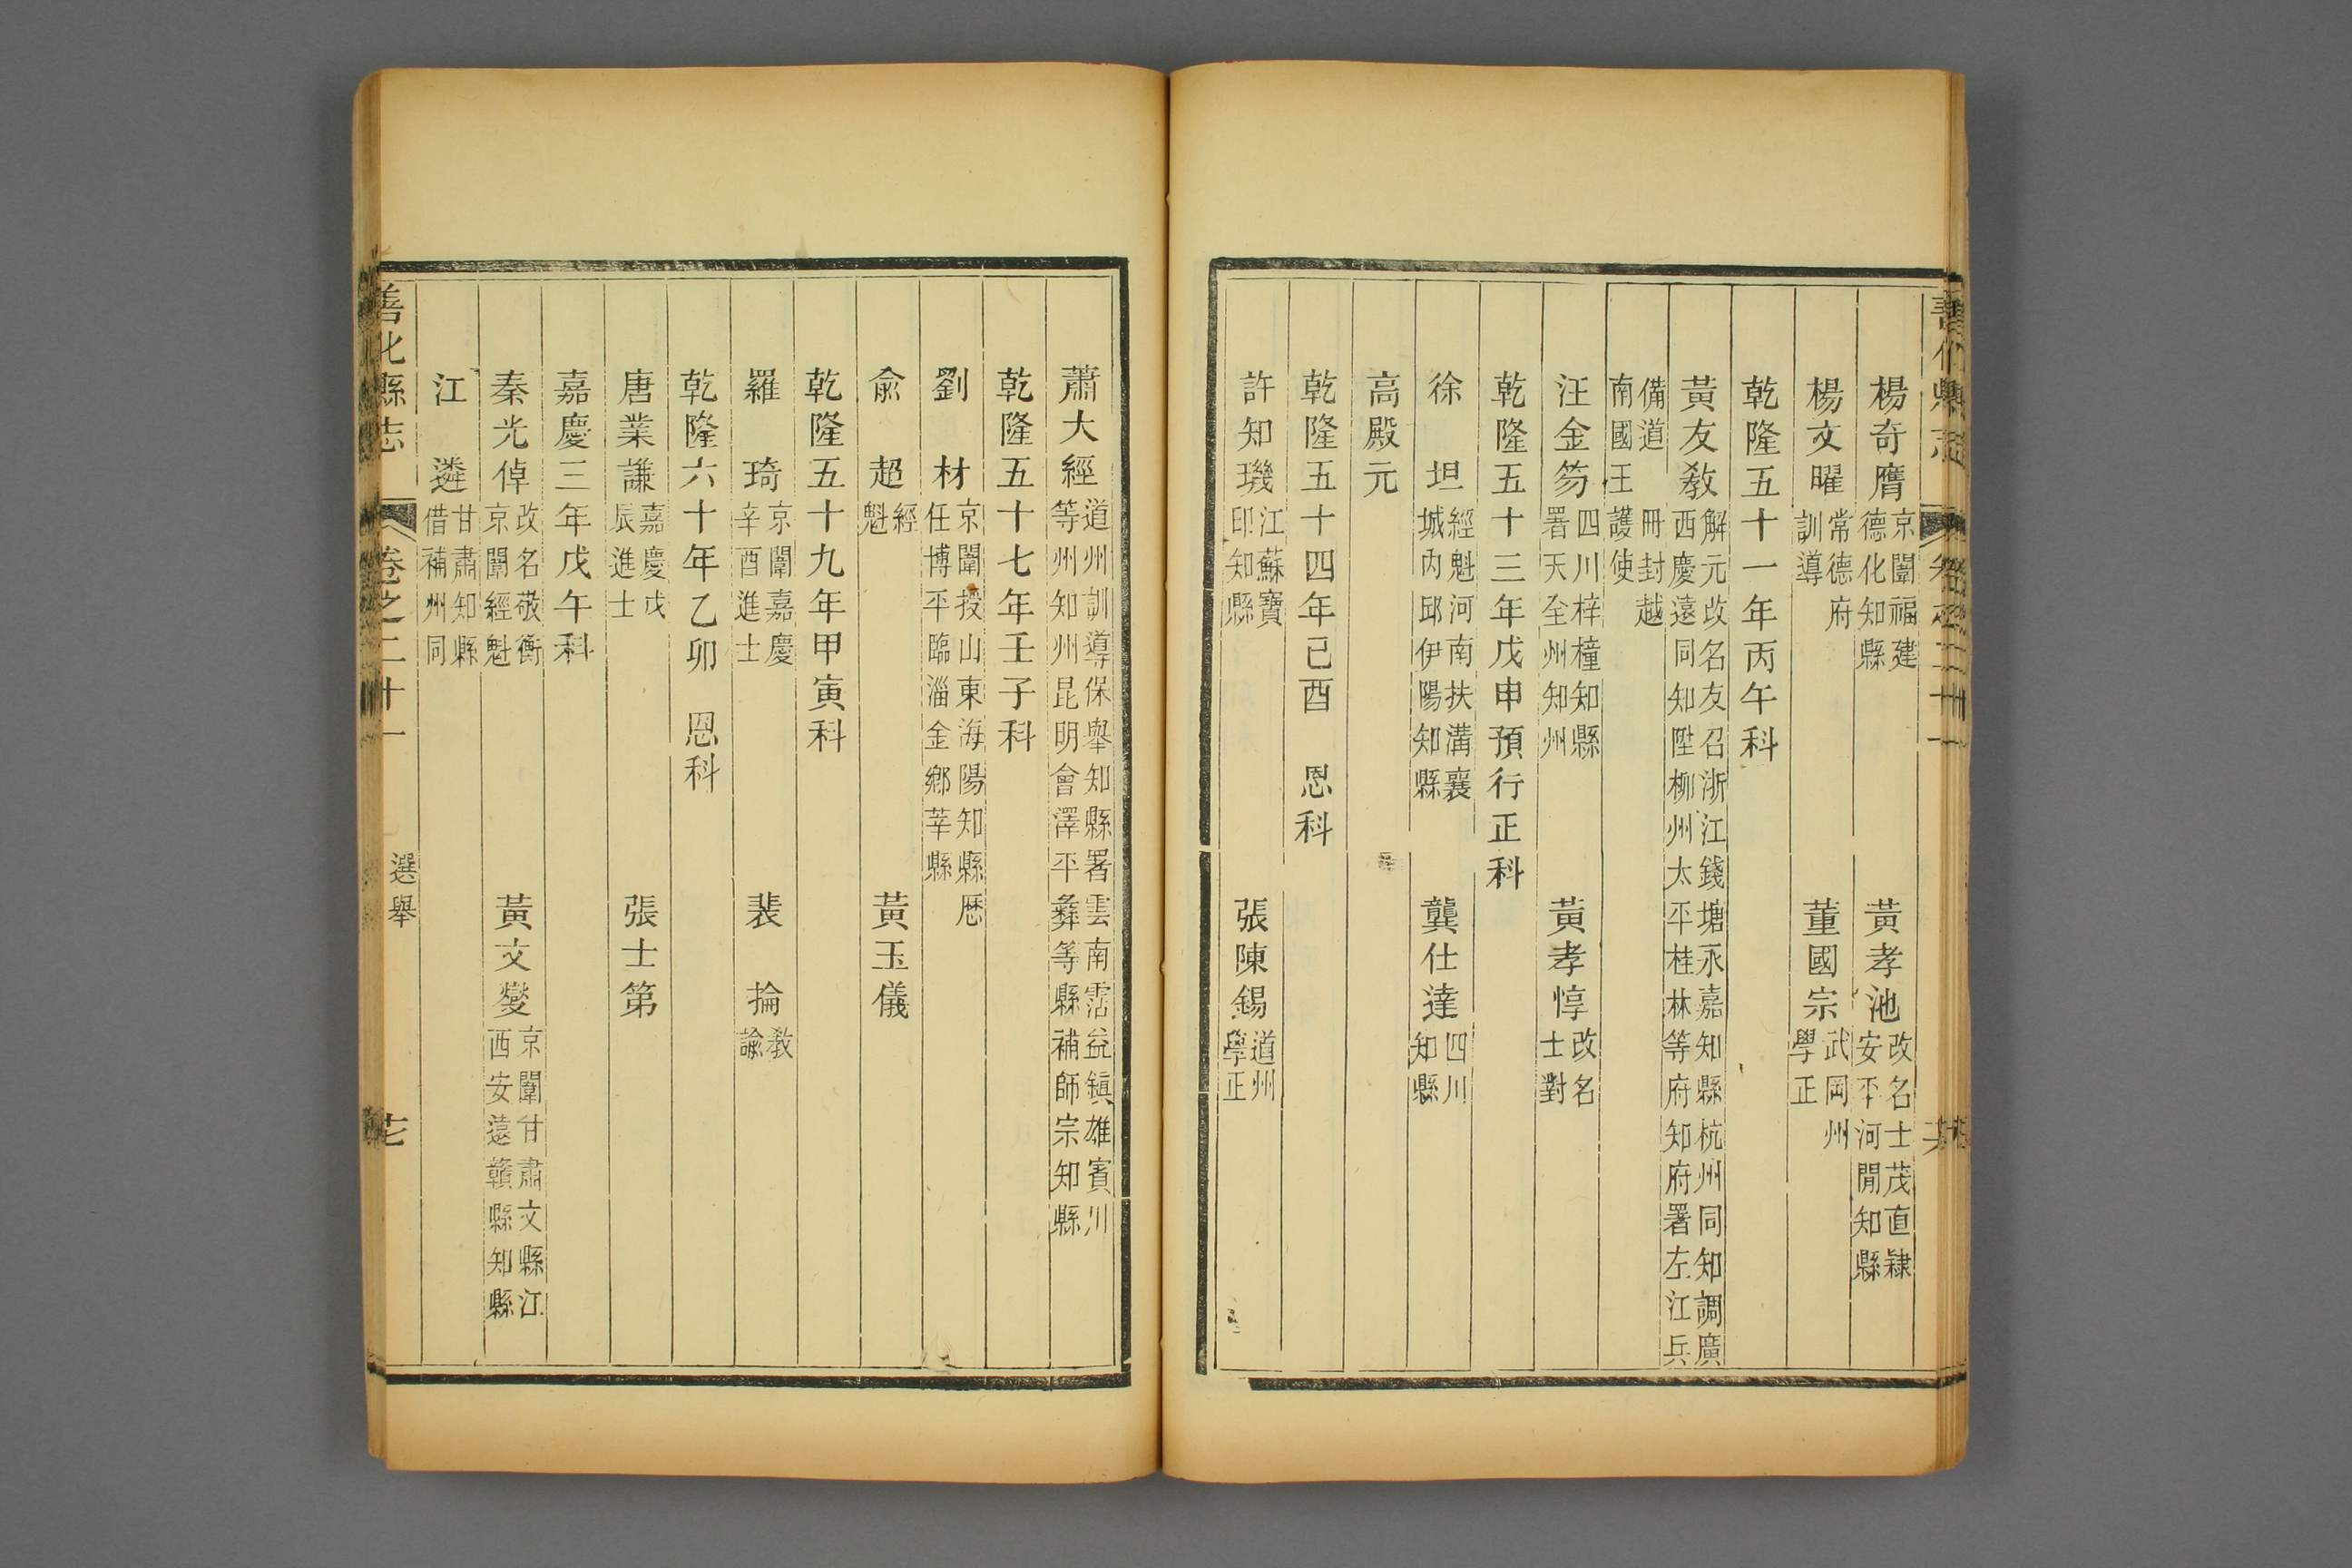 善化縣志 卷之二十一
楊奇膺 京闈福建德化知縣 黃孝池 改名士茂直隸安平河間知縣
楊文曜 常德府訓導 董國宗 武岡州學正
乾隆五十一年丙午科
黃友教 解元改名友召浙江錢塘永嘉知縣杭州同知調廣西慶遠同知陞柳州太平桂林等府知府署左江兵
備道 冊封越南國王護使
汪金笏 四川梓橦知縣署天全州知州 黃孝惇 改名士對
乾隆五十三年戊申預行正科
徐坦 經魁河南扶溝襄城內邱伊陽知縣 龔仕達 四川知縣
高殿元
乾隆五十四年己酉 恩科
許知璣 江蘇寶印知縣 張陳錫 道州學正
蕭大經 道州訓導保舉知縣署雲南霑益鎮雄賓川等州知州昆明會澤平彝等縣補師宗知縣
乾隆五十七年壬子科
劉材 京闈授山東海陽知縣歷任博平臨淄金鄉莘縣
俞超 經魁 黃玉儀
乾隆五十九年甲寅科
羅琦 京闈嘉慶辛酉進士 裴掄 教諭
乾隆六十年乙卯 恩科
唐業謙 嘉慶戊辰進士 張士第
嘉慶三年戊午科
秦光倬 改名敬衡京闈經魁 黃文燮 京闈甘肅文縣江西安遠贛縣知縣
江遴 甘肅知縣借補州同
善化縣志 卷之二十一 選舉 七